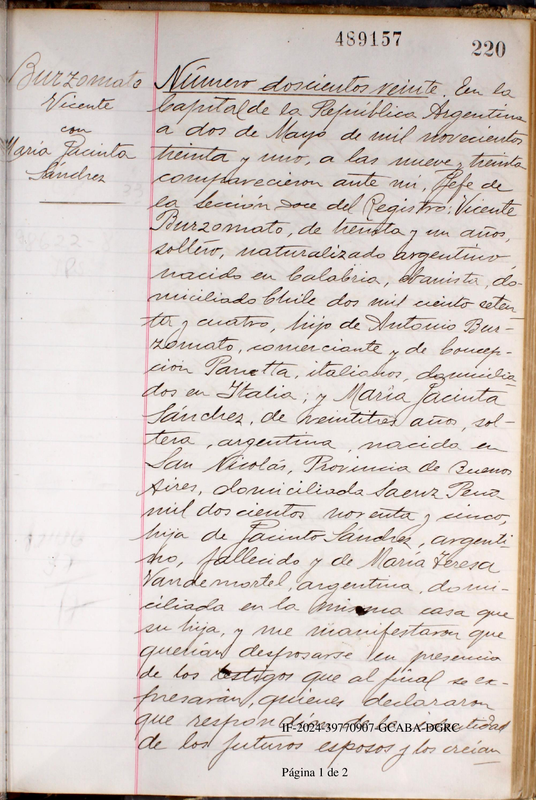 489157
220
Burzomato
Vicente
con
María Jacinta
Sánchez
Número doscientos veinte. En la
Capital de la República Argentina
a dos de Mayo de mil novecientos
treinta y uno, a las nueve y treinta
comparecieron ante mí, Jefe de
la Sección doce del Registro: Vicente
Burzomato, de treinta y un años,
soltero, naturalizado argentino
nacido en Calabria, ebanista, do-
miciliado Chile dos mil ciento seten-
ta y cuatro, hijo de Antonio Bur-
zomato, comerciante y de Concep-
cion Panetta, italianos, domicilia-
dos en Italia; y María Jacinta
Sánchez, de veintitres años, sol-
tera, argentina, nacida en
San Nicolás, Provincia de Buenos
Aires, domiciliada Saenz Pena
mil doscientos noventa y cinco,
hija de Jacinto Sánchez, argenti-
no, fallecido y de María Teresa
Vandemortel argentina, domi-
ciliada en la misma casa que
su hija, y me manifestaron que
querían desposarse en presencia
de los testigos que al final se ex-
presarán, quienes declararon
que respondían de la identidad
de los futuros esposos y los creían
IF-2024-39770907-GCABA-DGRC
Página 1 de 2